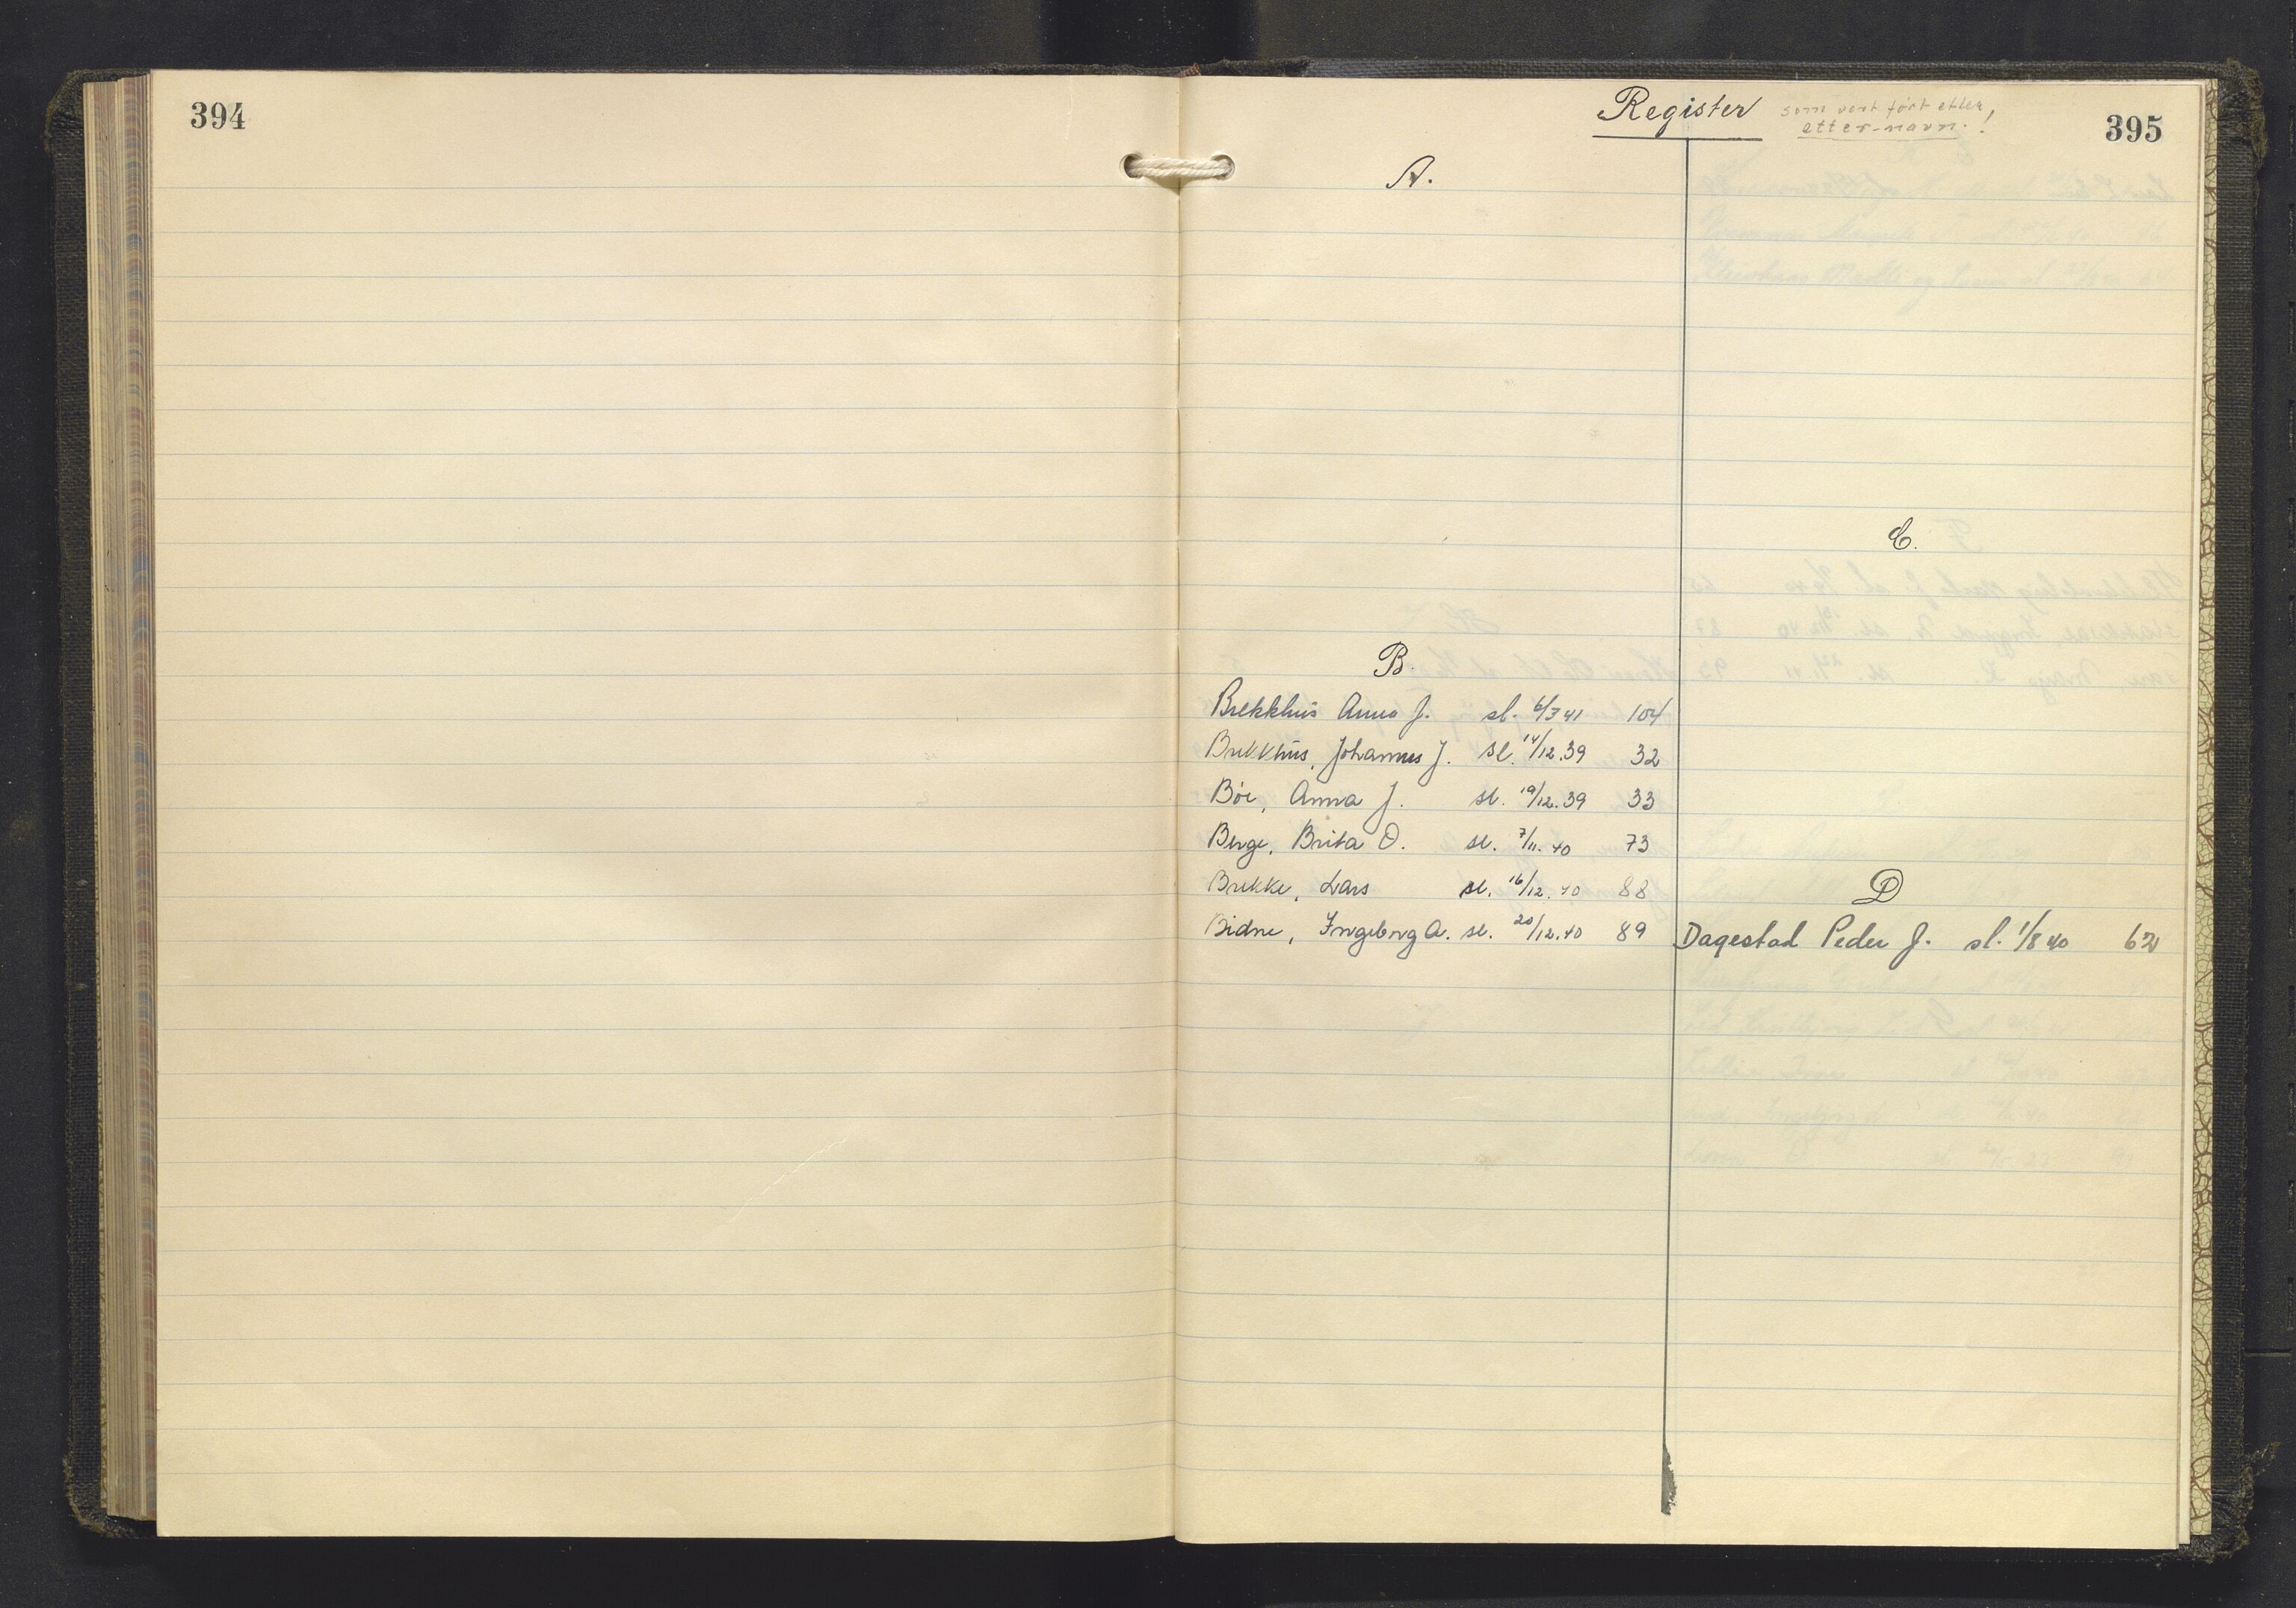 394
Register som vert ført etter
etter-navn.!
395
A.
B.
Brekkhus Anna J. sl. 6/3 41 104
Brekkhus, Johannes J. sl. 14/12.39 32
Böe, Anna J. sl. 19/12.39 33
Berge, Brita O. sl. 7/11.40 73
Brekke, Lars sl. 16/12.40 88
Bidne, Ingeborg A. sl. 20/12.40 89
C.
D
Dagestad Peder J. sl. 1/8 40 62